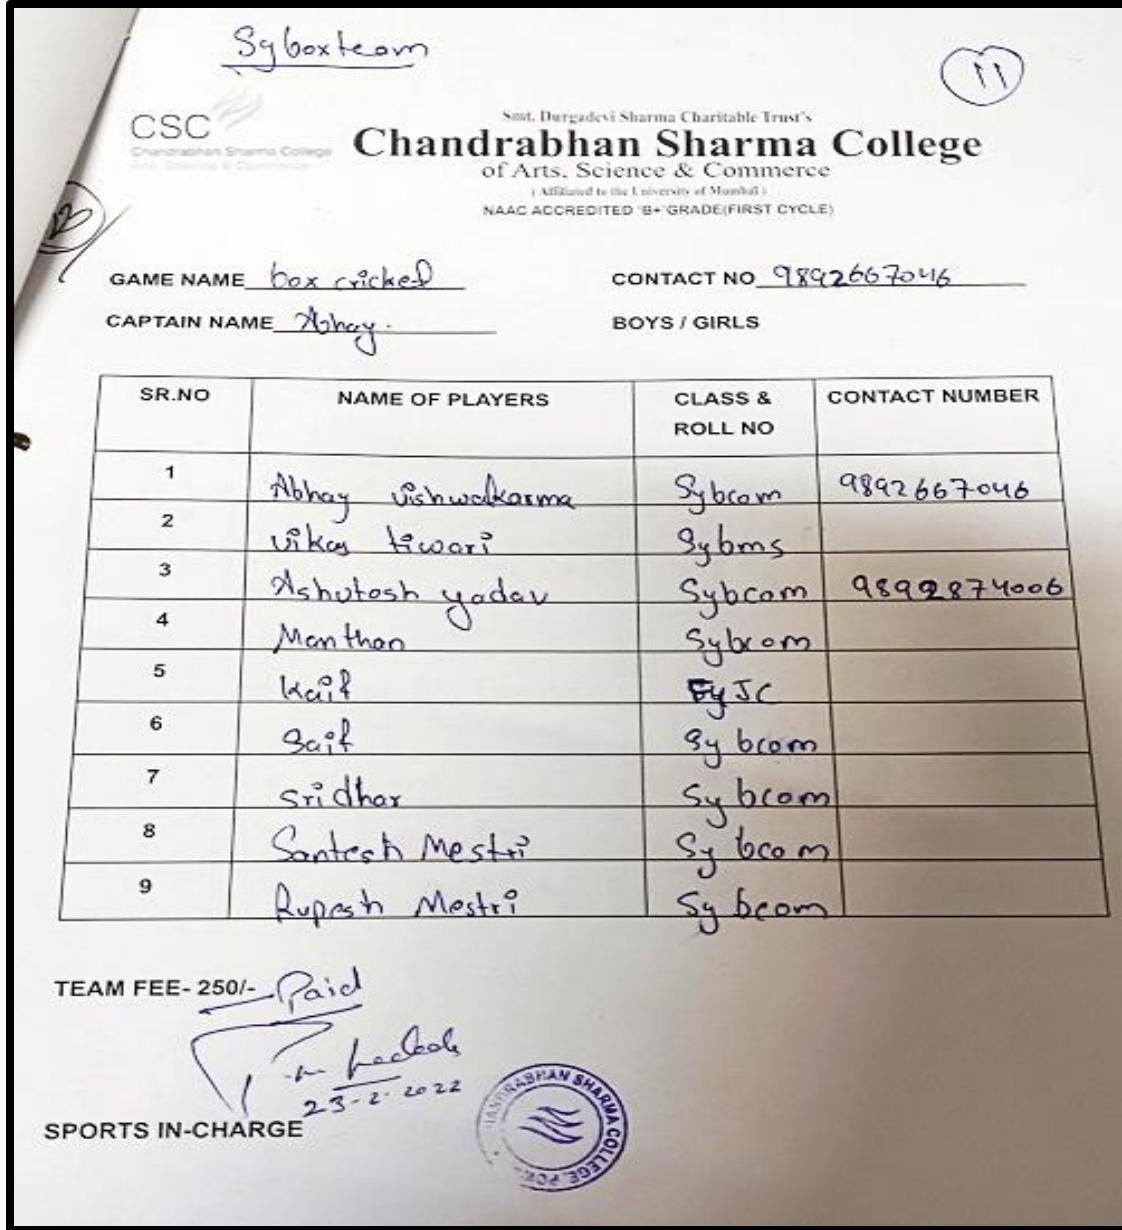 Syboxteam
11
CSC
Chandrabhan Sharma College
Arts, Science & Commerce
Smt. Durgadevi Sharma Charitable Trust's
Chandrabhan Sharma College
of Arts, Science & Commerce
( Affiliated to the University of Mumbai )
NAAC ACCREDITED 'B+'GRADE(FIRST CYCLE)
GAME NAME box cricket CONTACT NO 9892667046
CAPTAIN NAME Abhay. BOYS / GIRLS
SR.NO NAME OF PLAYERS CLASS & ROLL NO CONTACT NUMBER
1 Abhay vishwakarma Sybcom 9892667046
2 vikas tiwari Sybms
3 Ashutosh yadav Sybcom 9892874006
4 Manthan Sybcom
5 Kaif FyJC
6 Saif Sy bcom
7 sridhar Sy bcom
8 Santesh Mestri Sy bcom
9 Rupesh Mestri Sy bcom
TEAM FEE- 250/- Paid
23-2-2022
SPORTS IN-CHARGE
CHANDRABHAN SHARMA COLLEGE, POW